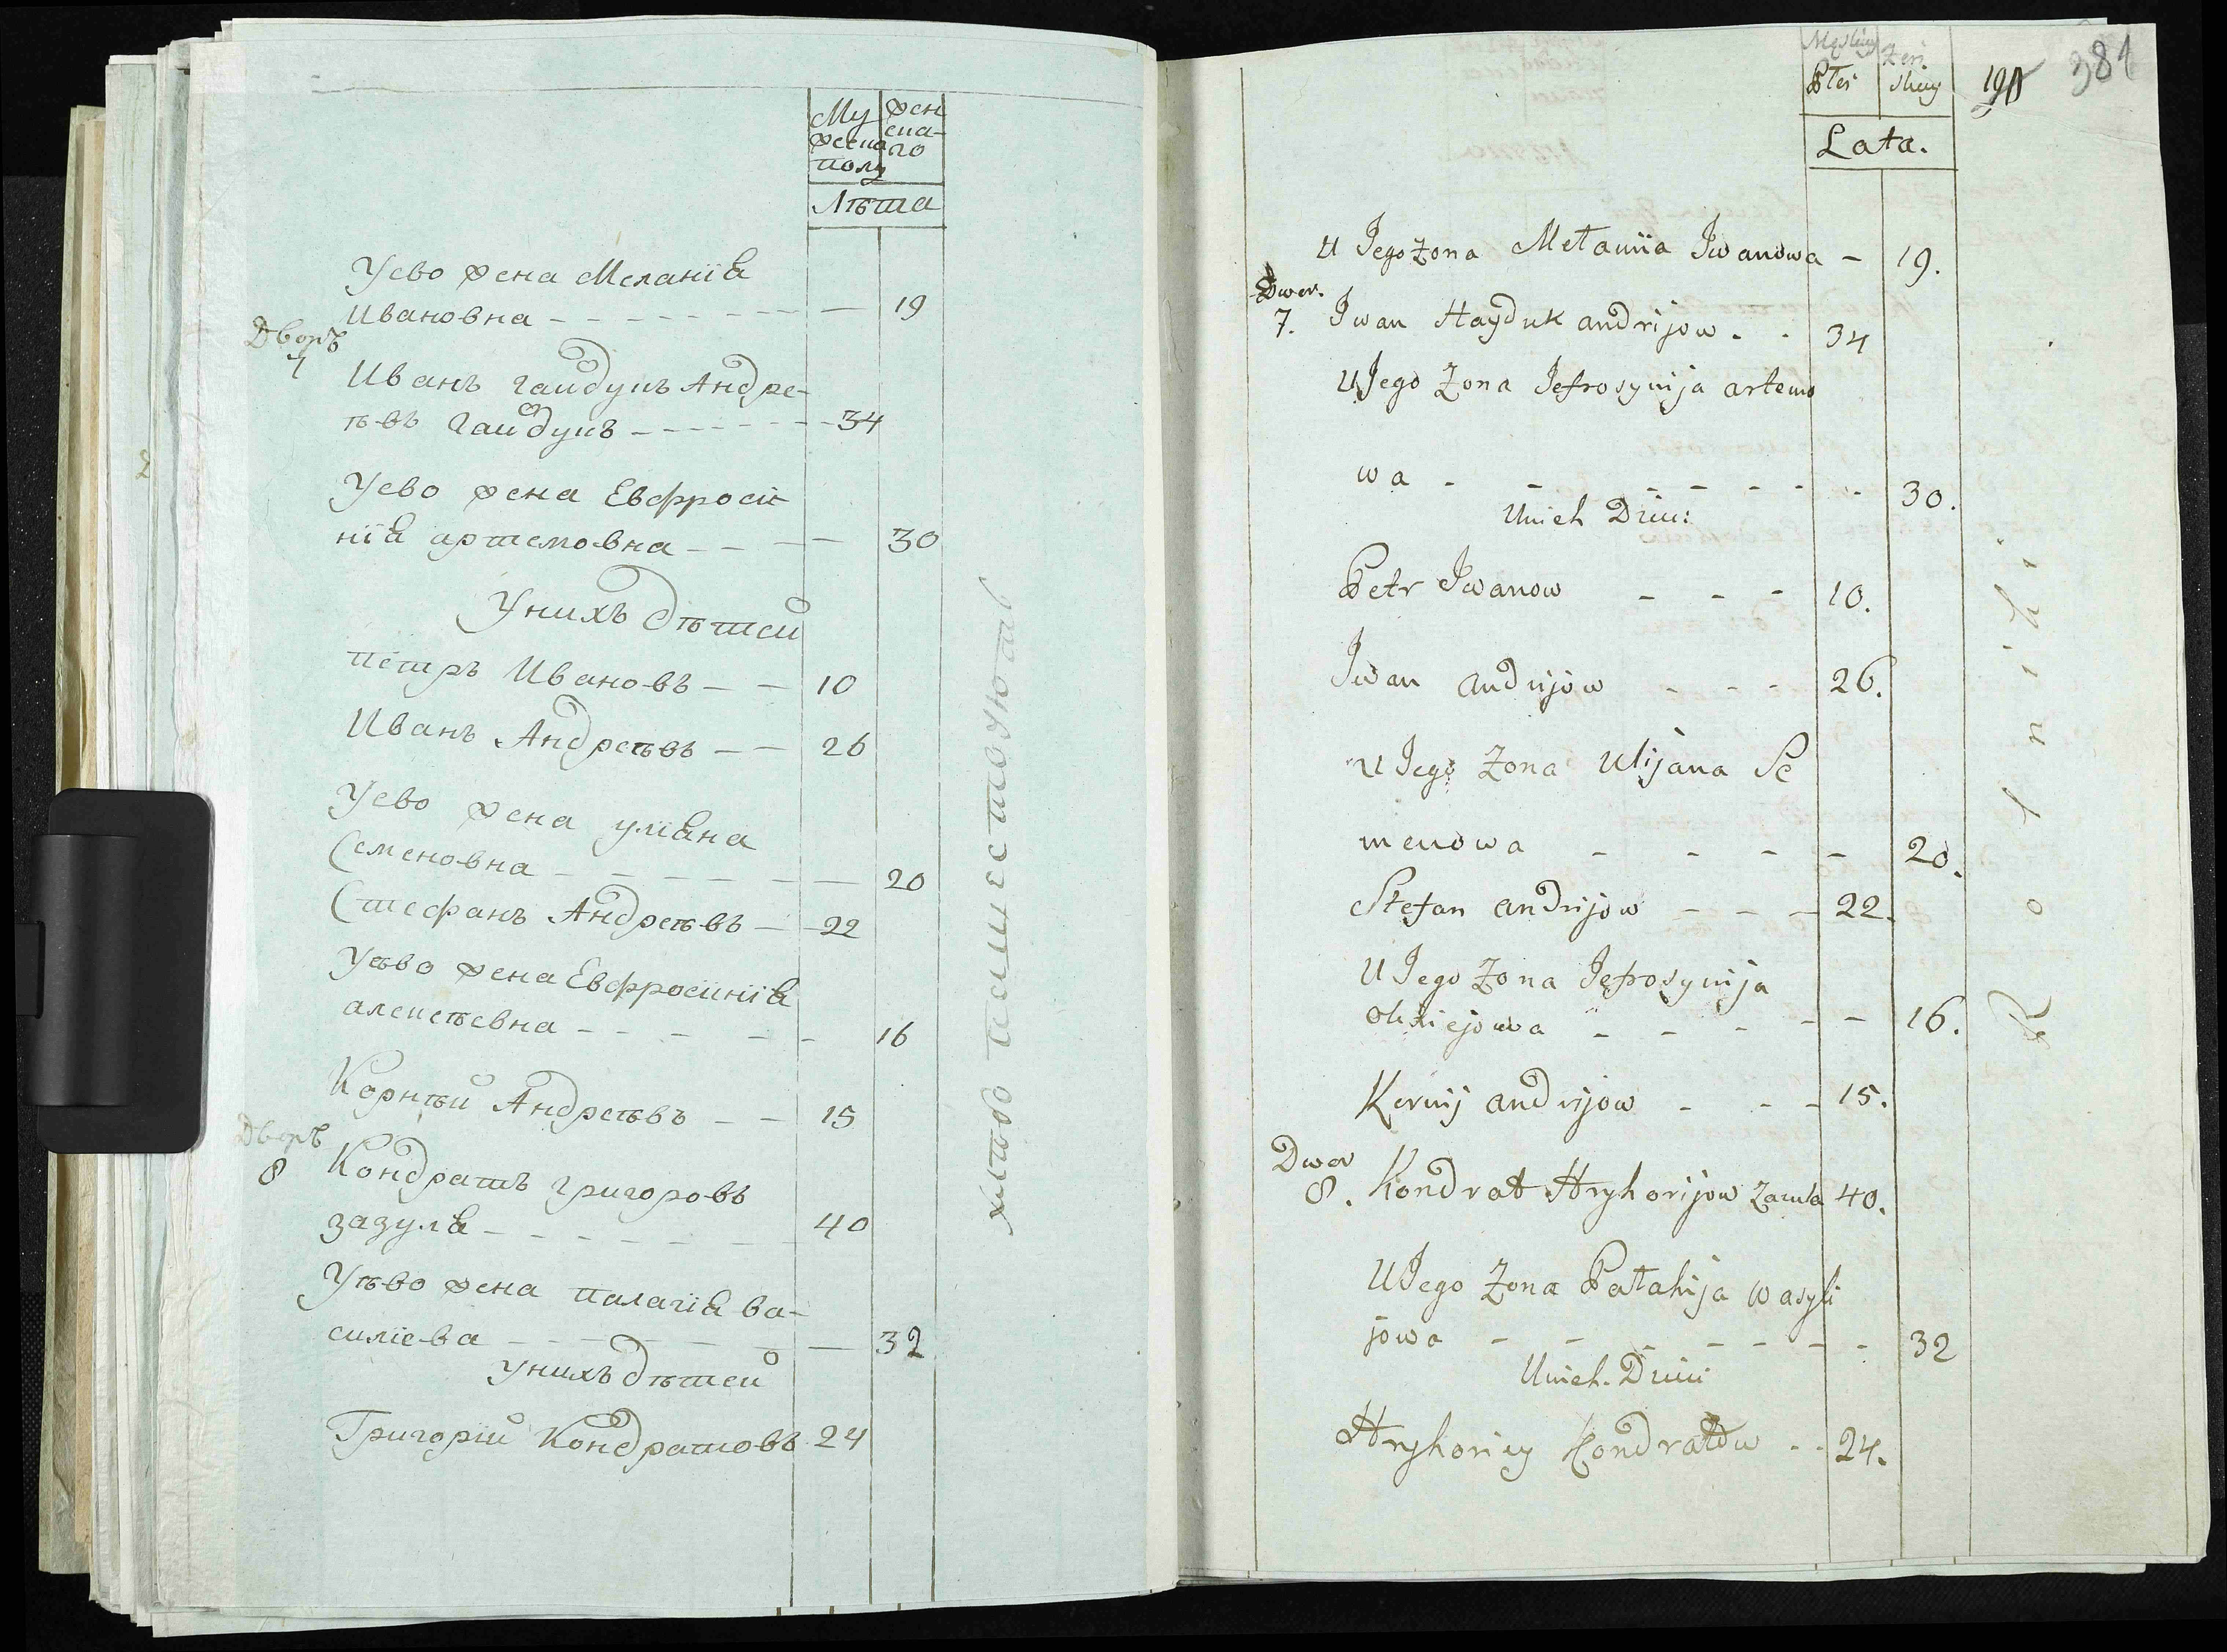 Му
жеска
полу
жен
ска-
го
Лѣта
Уево жена Меланїя
Ивановна — 19
Дворъ
7
Иванъ гайдукъ Андре-
ѣвъ Гайдукъ — 34
Уево жена Евфроси
нїя артемовна — 30
Унихъ Дѣтей
петръ Ивановъ — 10
Иванъ Андреѣвъ — 26
Уево жена улїяна
Семеновна — 20
Стефанъ Андреѣвъ — 22
Уѣво жена Евфросинїя
алексѣевна — 16
Корнѣй Андреѣвъ — 15
Дворъ
8
Кондратъ григоровъ
зазуля — 40
Уѣво жена палагїя ва-
силїева — 32
унихъ Дѣтей
Григорїй Кондратовъ 24
Męskiey
Płci
Żen
skiey
190
381
Lata.
U Jego Żona Mełanija Iwanowa – 19.
Dwor.
7. Iwan Hayduk andrijow – 34
U Jego Żona Jefrosynija artemo
wa – 30.
Unich Dzieci
Petr Iwanow – 10.
Iwan andrijow – 26.
U Jego Żona Ulijana Se
menowa – 20.
Stefan andrijow – 22.
U Jego Żona Jefrosynija
Olexiejowa – 16.
Kornij andrijow – 15.
Dwor
8. Kondrat Hryhorijow 40.
U Jego Żona Pałahija wasyli
jowa – 32
Unich Dzieci
Hryhoriey Kondratow – 24.
Rolniki